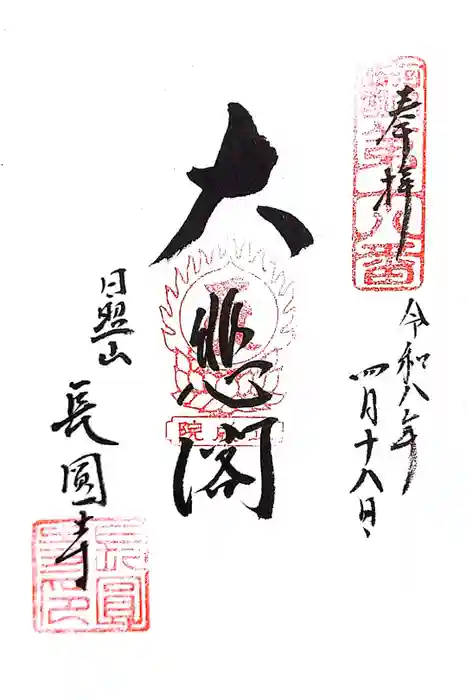 奉拝
令和八年
四月十八日
大悲閣
日照山
長圓寺